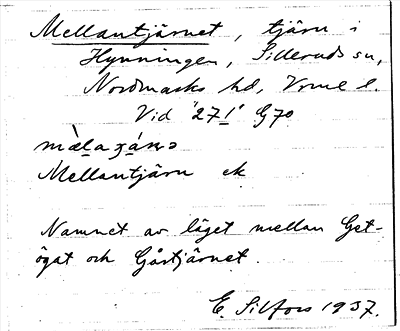 Mellantjärnet, tjärn i
Hynningen, Silleruds sn,
Nordmarks hd, Vrml l.
Vid "271" G70
Mellantjärn ek
Namnet av läget mellan Get-
ögat och Gåstjärnet.
E. Silfors 1937.